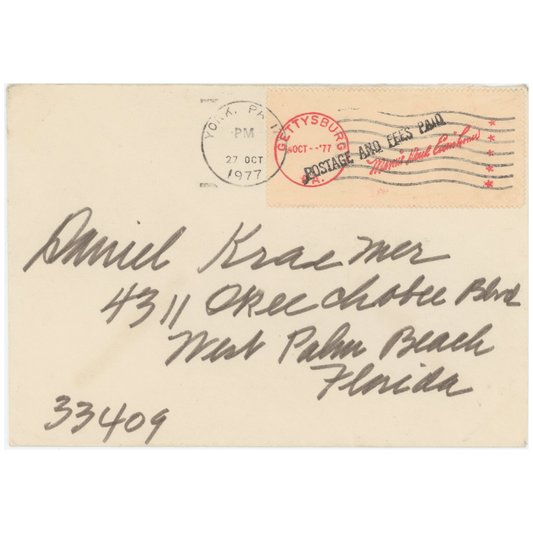 YORK, PA 1
PM
27 OCT
1977
GETTYSBURG
OCT--'77
PA.
POSTAGE AND FEES PAID
Daniel Kraemer
4311 Okeechobee Blvd
West Palm Beach
Florida
33409